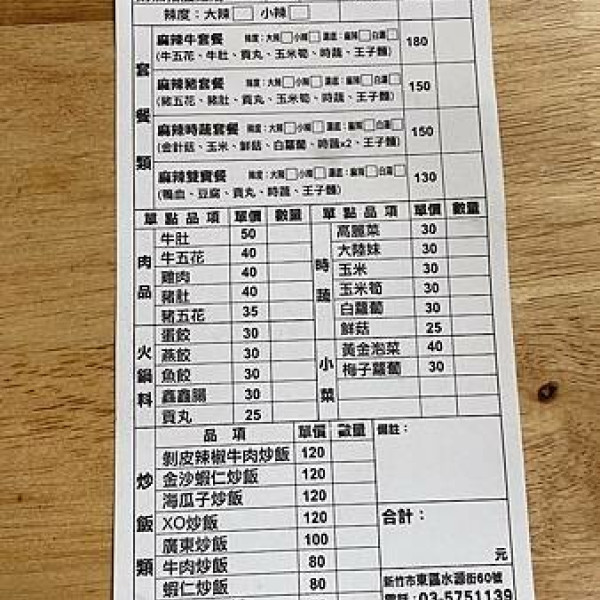 辣度：大辣 小辣
套餐類
麻辣牛套餐 辣度：大辣 小辣 湯底：麻辣 白湯 180
(牛五花、牛肚、貢丸、玉米筍、時蔬、王子麵)
麻辣豬套餐 辣度：大辣 小辣 湯底：麻辣 白湯 150
(豬五花、豬肚、貢丸、玉米筍、時蔬、王子麵)
麻辣時蔬套餐 辣度：大辣 小辣 湯底：麻辣 白湯 150
(金針菇、玉米、鮮菇、白蘿蔔、時蔬x2、王子麵)
麻辣雙寶餐 辣度：大辣 小辣 湯底：麻辣 白湯 130
(鴨血、豆腐、貢丸、時蔬、王子麵)
單點品項 單價 數量 單點品項 單價 數量
肉品
牛肚 50
牛五花 40
雞肉 40
豬肚 40
豬五花 35
火鍋料
蛋餃 30
燕餃 30
魚餃 30
鑫鑫腸 30
貢丸 25
時蔬
高麗菜 30
大陸妹 30
玉米 30
玉米筍 30
白蘿蔔 30
鮮菇 25
小菜
黃金泡菜 40
梅子蘿蔔 30
品項 單價 數量 備註：
炒飯類
剝皮辣椒牛肉炒飯 120
金沙蝦仁炒飯 120
海瓜子炒飯 120
XO炒飯 120
廣東炒飯 100
牛肉炒飯 80
蝦仁炒飯 80
合計：
元
新竹市東區水源街60號
電話：03-5751139